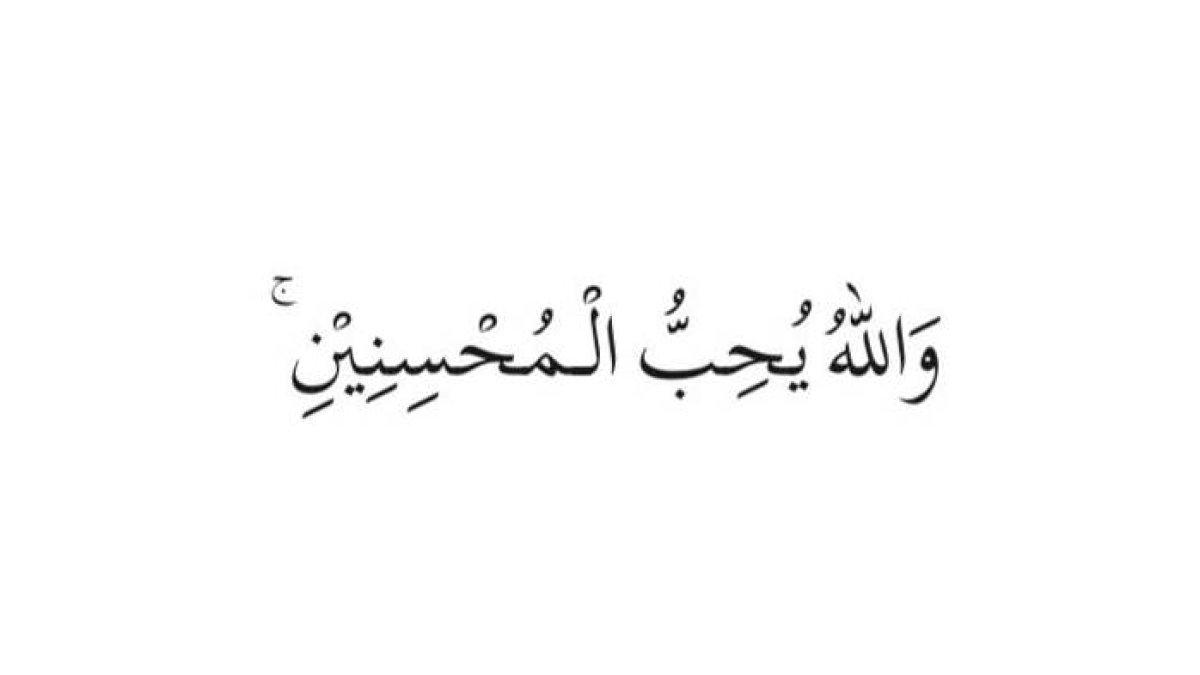 وَاللّٰهُ يُحِبُّ الْمُحْسِنِيْنِ ۚ